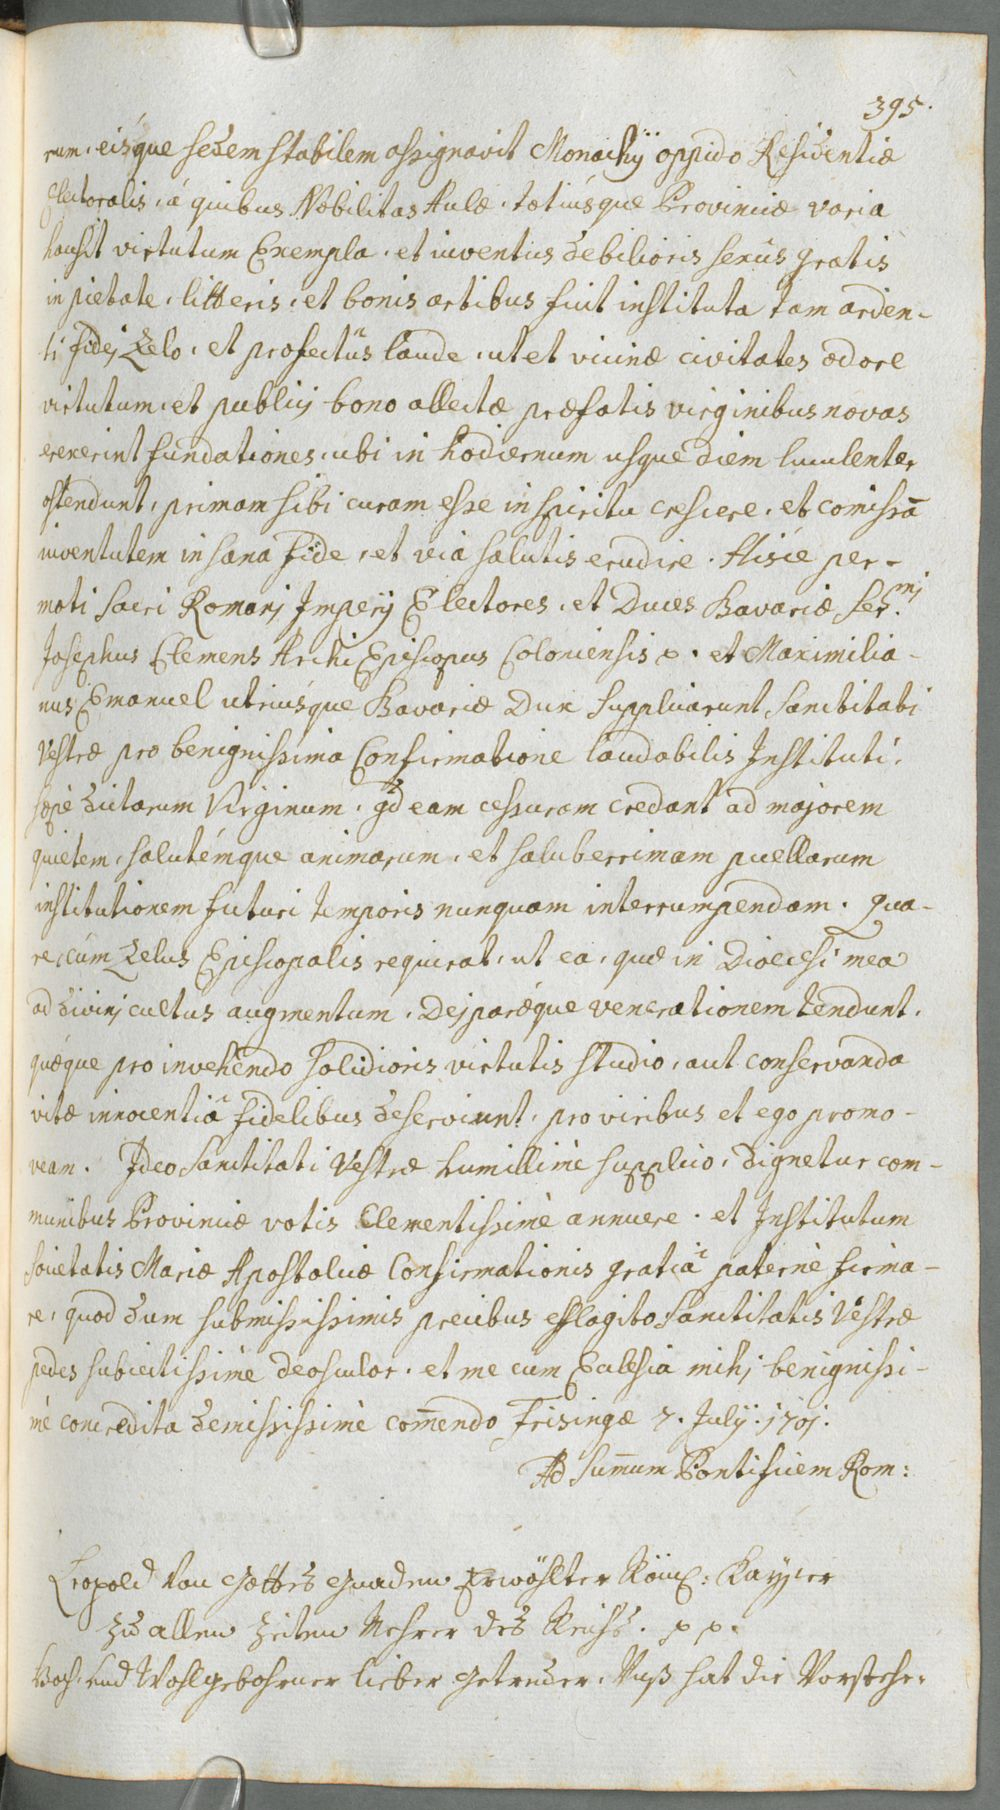 395.
rum, eisque sedem stabilem assignavit Monachij oppido Residentiæ
Electoralis, à quibus Nobilitas Aulæ, totiúsque Provinciæ varia
hausit virtutum Exempla, et iuventus debilioris sexûs gratis
in pietate, litteris, et bonis artibus fuit instituta tam arden-
ti fidej Zelo, et profectûs laude, ut et vicinæ civitates odore
virtutum, et publicj bono allectæ præfatis virginibus novas
erexerint fundationes, ubi in hodiernum usque diem luculenter
ostendunt, primam sibi curam esse in spiritu crescere, et comissā
iuventutem in sana fide, et via salutis erudire. Hisce per-
moti Sacri Romanj Imperij Electores, et Duces Bavariæ Ser.mj
Josephus Clemens Archi Episcopus Coloniensis p. et Maximilia-
nus Emanuel utriúsque Bavariæ Dux supplicarunt Sanctitati
Vestræ pro benignissima Confirmatione laudabilis Instituti,
sæpè dictarum Virginum, qd eam cessuram credant ad majorem
quietem, salutémque animarum, et saluberrimam puellarum
institutionem futuri temporis nunquam interrumpendam. Qua-
re, cùm Zelus Episcopalis requirat, ut ea, quæ in Dioecesi mea
ad divinj cultus augmentum, Dejparæque venerationem tendunt,
quæque pro invehendo solidioris virtutis studio, aut conservanda
vitæ innocentiâ fidelibus deserviunt, pro viribus et ego promo-
veam. Ideo Sanctitati Vestræ humillimè supplico, dignetur com-
munibus Provinciæ votis Clementissimè annuere, et Institutum
Societatis Mariæ Apostolicæ Confirmationis gratiâ paternè firma-
re, quod dum submississimis precibus efflagito Sanctitatis Vestræ
pedes subiectissimè deosculor, et me cum Ecclesia mihj benignissi-
mè concredita demississimè com̄endo Frisingæ 7. Julij. 1701.
Ad Sum̄um Pontificem Rom:
Leopold Von Gottes Gnaden Erwöhlter Röm: Kayser
zu allen Zeiten Mehrer des Reichs. p p.
Hoch- und Wohlgebohrner lieber Getreuer. Unß hat die Vorstehe-